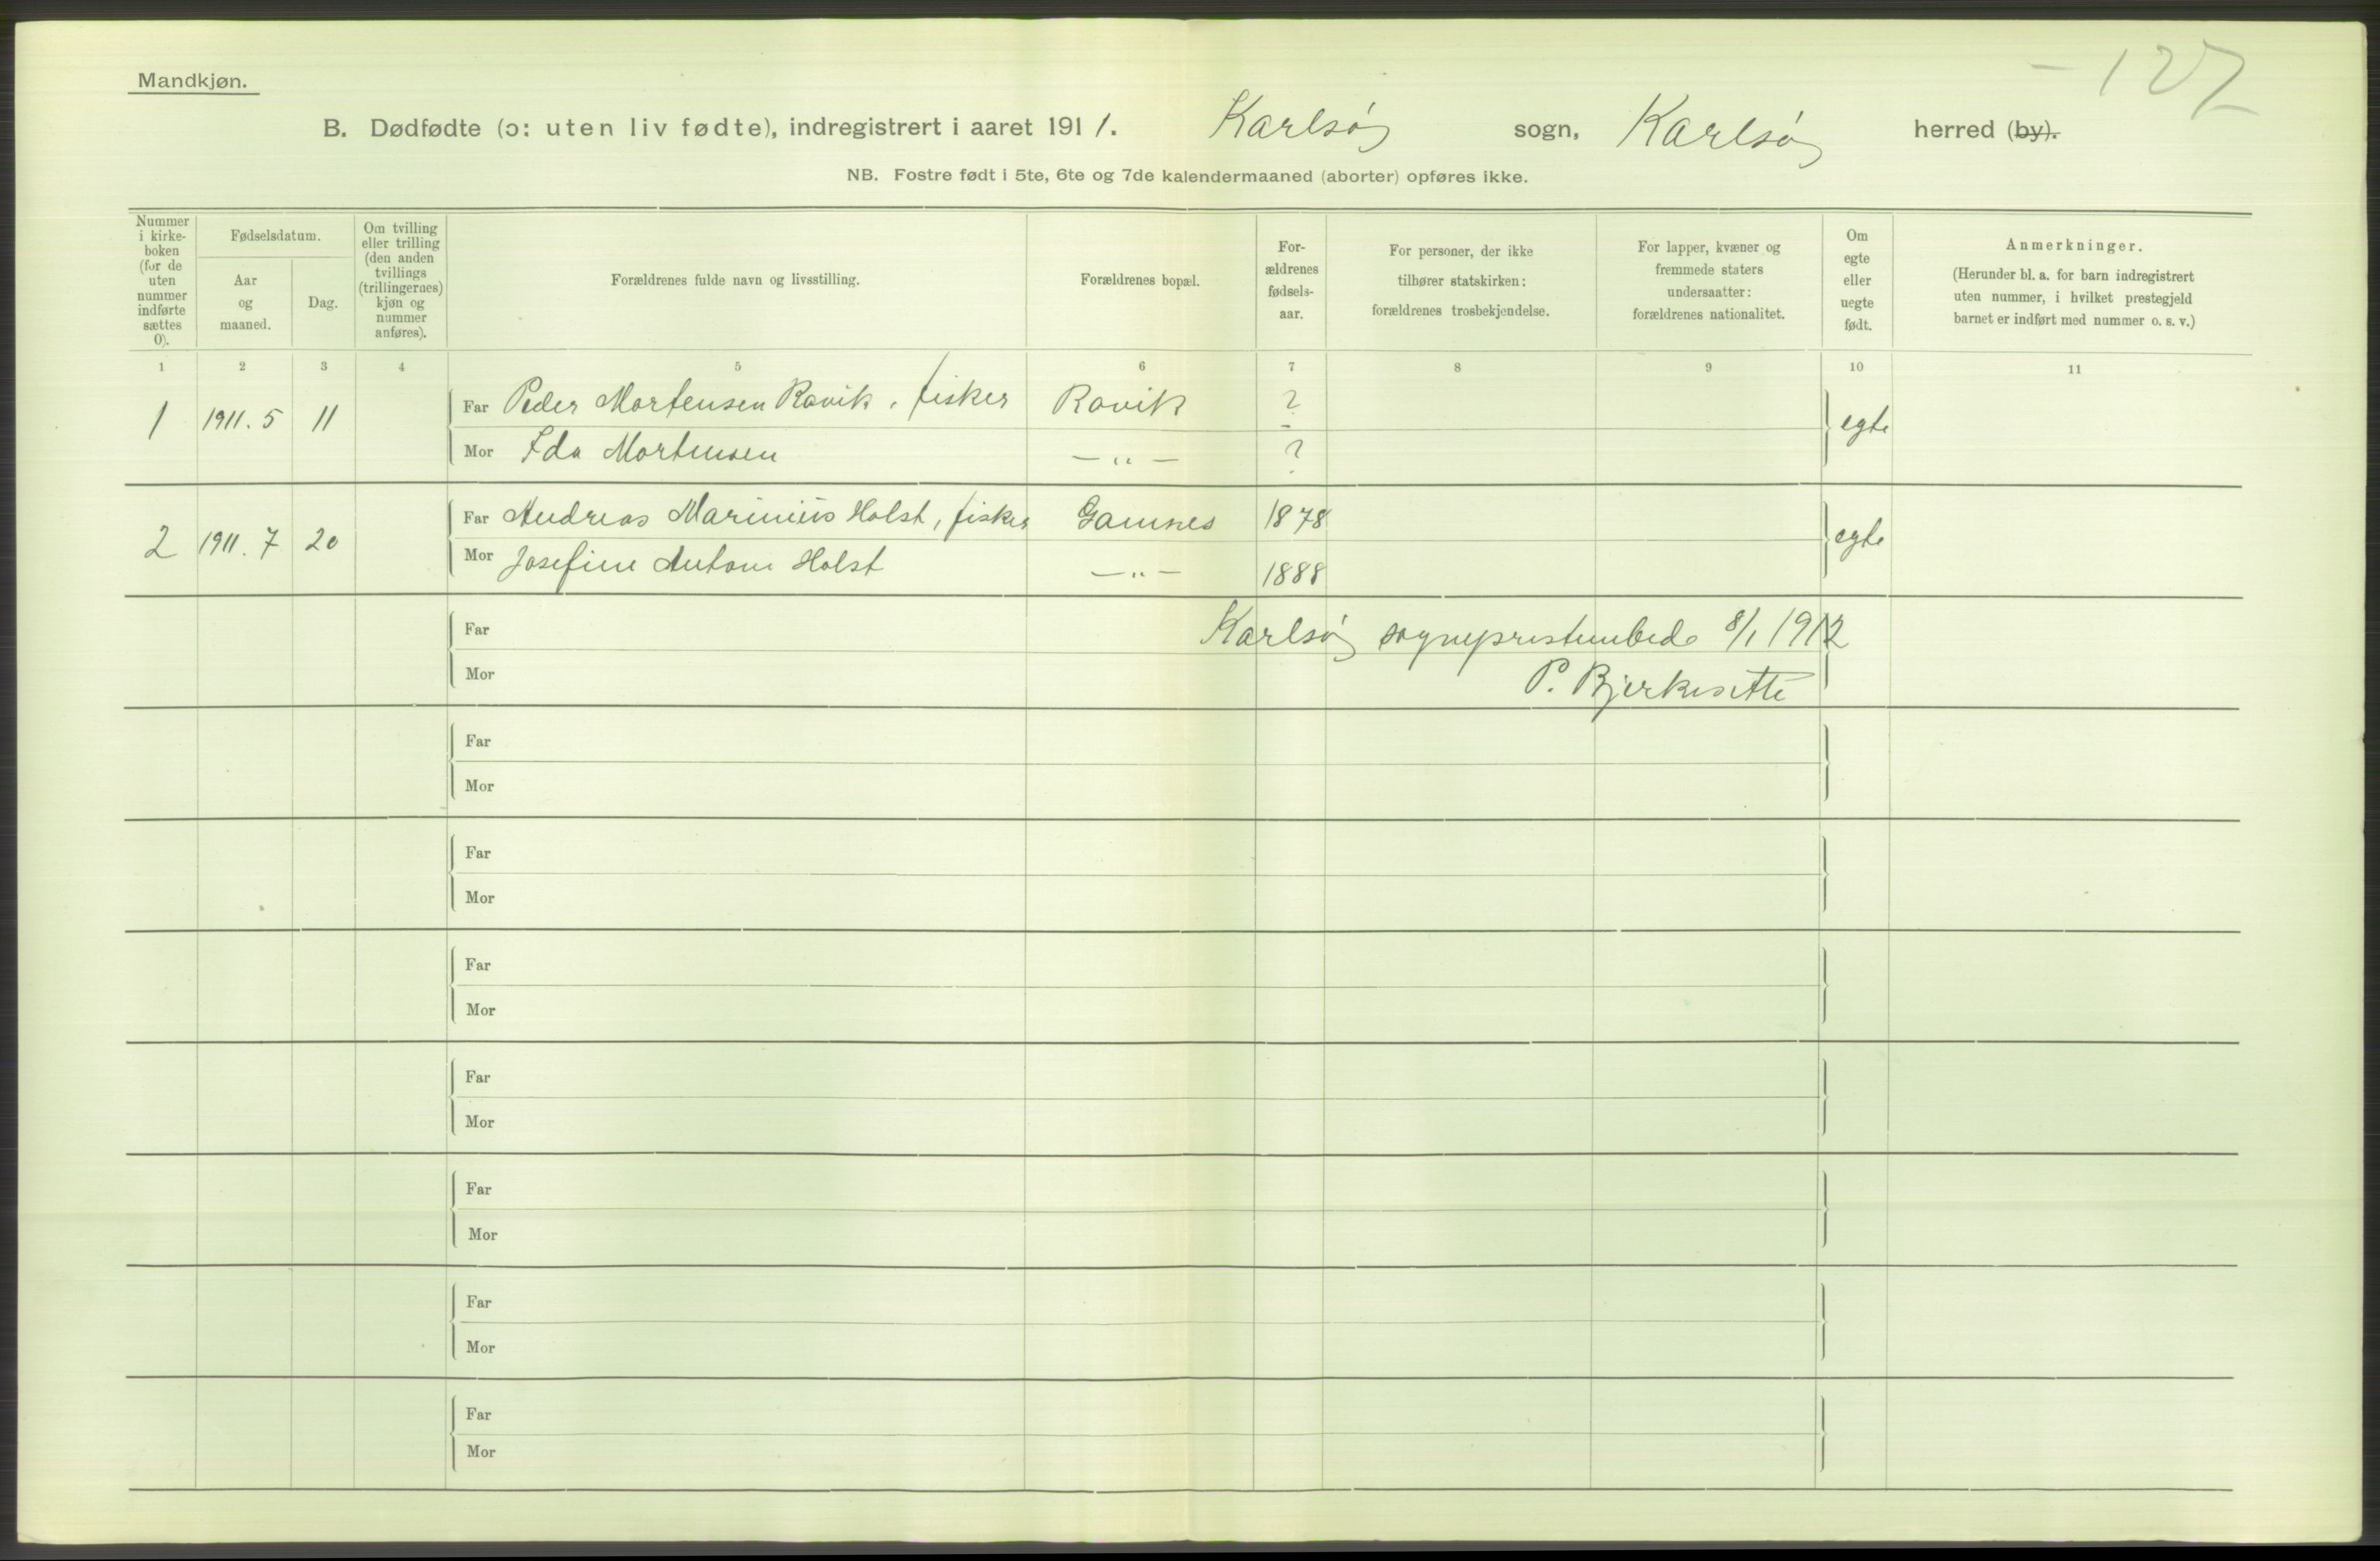 Mandkjøn.
- 127
B. Dødfødte (ɔ: uten liv fødte), indregistrert i aaret 1911. Karlsøy sogn, Karlsøy herred (by).
NB. Fostre født i 5te, 6te og 7de kalendermaaned (aborter) opføres ikke.
Nummer
i kirke-
boken
(for de
uten
nummer
indførte
sættes
0).
Fødselsdatum.
Aar
og
maaned.
Dag.
Om tvilling
eller trilling
(den anden
tvillings
(trillingernes)
kjøn og
nummer
anføres).
Forældrenes fulde navn og livsstilling.
Forældrenes bopæl.
For-
ældrenes
fødsels-
aar.
For personer, der ikke
tilhører statskirken:
forældrenes trosbekjendelse.
For lapper, kvæner og
fremmede staters
undersaatter:
forældrenes nationalitet.
Om
egte
eller
uegte
født.
Anmerkninger.
(Herunder bl. a. for barn indregistrert
uten nummer, i hvilket prestegjeld
barnet er indført med nummer o. s. v.)
1 2 3 4 5 6 7 8 9 10 11
1 1911. 5 11 Far Peder Mortensen Ravik, fisker Ravik ? egte
Mor Ida Mortensen — „ — ?
2 1911. 7 20 Far Andreas Marinius Holst, fisker Gamnes 1878 egte
Mor Josefine Antoni Holst — „ — 1888
Far Karlsøy sogneprestembede 8/1 1912
Mor P. Bjerkesette
Far
Mor
Far
Mor
Far
Mor
Far
Mor
Far
Mor
Far
Mor
Far
Mor